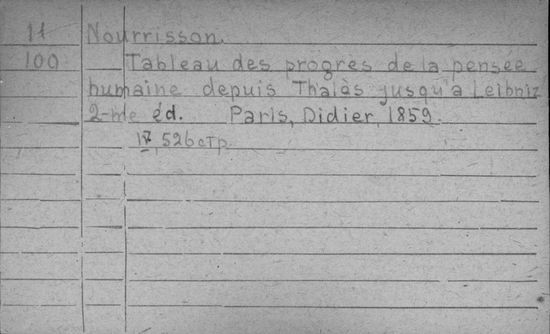 11 Nourrisson.
100 Tableau des progrès de la pensée
humaine depuis Thalès jusqu'a Leibniz
2-me éd. Paris, Didier, 1859.
17, 526 стр.